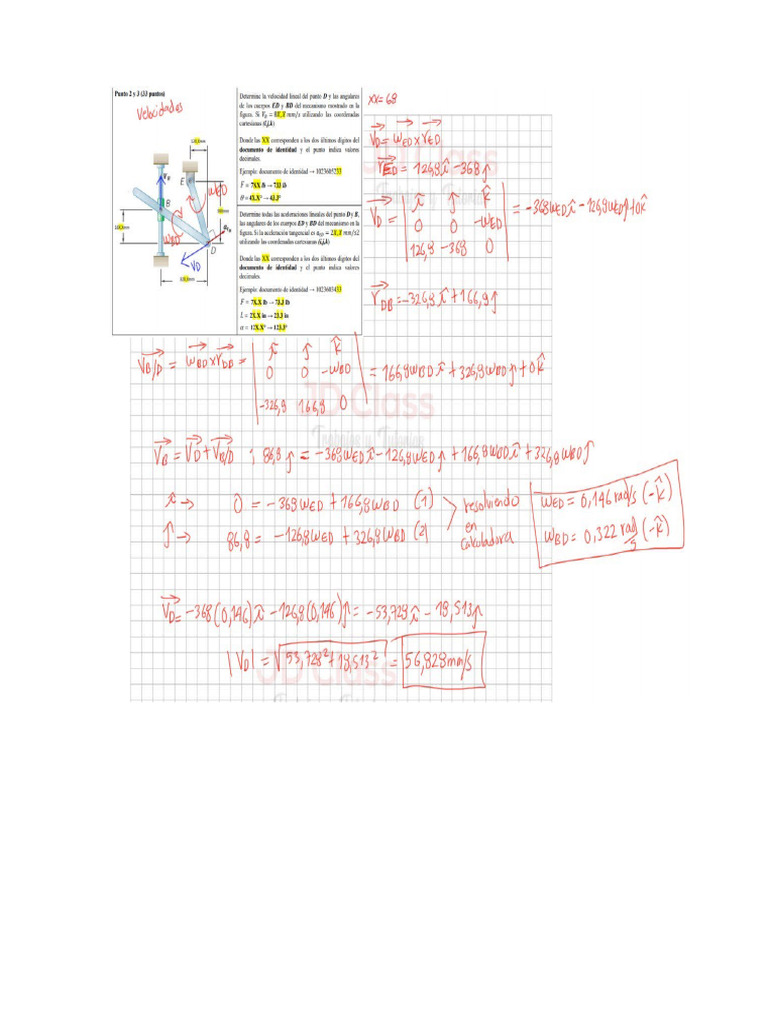 Punto 2 y 3 (33 puntos)
Velocidades
E
B
D
V_B
V_D
ω_ED
ω_BD
Determine la velocidad lineal del punto D y las angulares
de los cuerpos ED y BD del mecanismo mostrado en la
figura. Si V_B = 8X,X mm/s utilizando las coordenadas
cartesianas (i,j,k)
Donde las XX corresponden a los dos últimos dígitos del
documento de identidad y el punto indica valores
decimales.
Ejemplo: documento de identidad → 1023605233
F = 7X.X lb → 73.3 lb
θ = 4X.X° → 43.3°
Determine todas las aceleraciones lineales del punto D y B,
las angulares de los cuerpos ED y BD del mecanismo en la
figura. Si la aceleración tangencial es = 2X,X mm/s2
utilizando las coordenadas cartesianas (i,j,k)
Donde las XX corresponden a los dos últimos dígitos del
documento de identidad y el punto indica valores
decimales.
Ejemplo: documento de identidad → 1023603433
F = 7X.X lb → 73.3 lb
L = 2X.X in → 23.3 in
α = 12X.X° → 123.3°
XX=68
V_D = ω_ED x r_ED
r_ED = 126,8 î - 368 ĵ
V_D = | î ĵ k̂ | = -368ω_ED î - 126,8ω_ED ĵ + 0k̂
0 0 -ω_ED
126,8 -368 0
r_DB = -326,8 î + 166,8 ĵ
V_B/D = ω_BD x r_DB = | î ĵ k̂ | = 166,8ω_BD î + 326,8ω_BD ĵ + 0k̂
0 0 -ω_BD
-326,8 166,8 0
JD Class
V_B = V_D + V_B/D ; 86,8 ĵ = -368ω_ED î - 126,8ω_ED ĵ + 166,8ω_BD î + 326,8ω_BD ĵ
î → 0 = -368ω_ED + 166,8ω_BD (1)
ĵ → 86,8 = -126,8ω_ED + 326,8ω_BD (2)
resolviendo
en
calculadora
ω_ED = 0,146 rad/s (-k̂)
ω_BD = 0,322 rad/s (-k̂)
V_D = -368(0,146) î - 126,8(0,146) ĵ = -53,728 î - 18,513 ĵ
|V_D| = √53,728² + 18,513² = 56,828 mm/s
JD Class